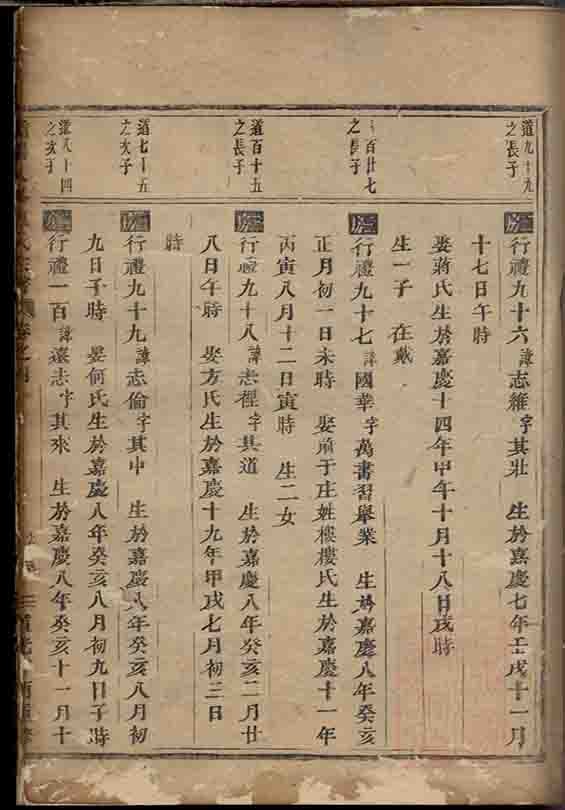 道九十九
之長子
行禮九十六 諱志維 字其壯 生於嘉慶七年壬戌十一月
十七日午時
娶蔣氏生於嘉慶十四年甲午十月十八日戌時
生一子 在戴
百廿七
之長子
行禮九十七 諱國華 字萬書習舉業 生於嘉慶八年癸亥
正月初一日未時 娶前于庄姓樓樓氏生於嘉慶十一年
丙寅八月十二日寅時 生二女
道百十五
之長子
行禮九十八 諱志 字其道 生於嘉慶八年癸亥二月廿
八日午時 娶方氏生於嘉慶十九年甲戌七月初三日
時
道七十五
之次子
行禮九十九 諱志倫 字其中 生於嘉慶八年癸亥八月初
九日子時 娶何氏生於嘉慶八年癸亥八月初九日子時
道八十四
之次子
行禮一百 諱遠志 字其來 生於嘉慶八年癸亥十一月十